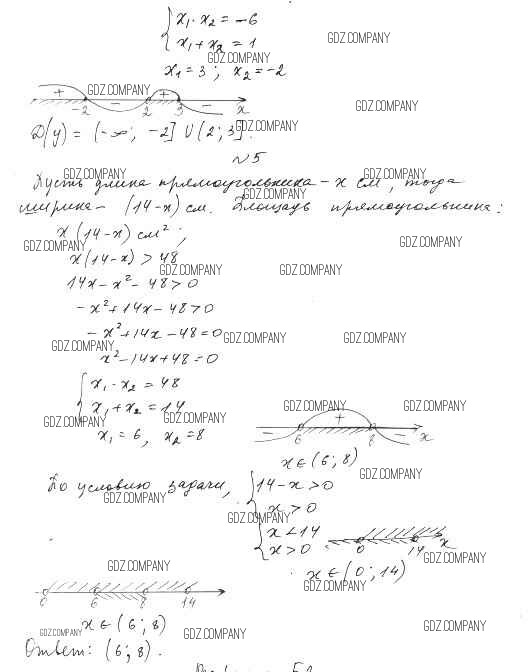 x₁·x₂ = -6
x₁+x₂ = 1
GDZ.COMPANY
GDZ.COMPANY
x₁=3; x₂=-2
+ GDZ.COMPANY +
-2 - 2 3 - x
GDZ.COMPANY
D(y) = (-∞; -2] ∪ (2; 3]. GDZ.COMPANY
№5
GDZ.COMPANY GDZ.COMPANY
Пусть длина прямоугольника - x см, тогда
GDZ.COMPANY
ширина - (14-x) см. Площадь прямоугольника:
x(14-x) см²;
GDZ.COMPANY GDZ.COMPANY
x(14-x) > 48
GDZ.COMPANY GDZ.COMPANY
14x-x²-48>0
-x²+14x-48>0
-x²+14x-48=0 GDZ.COMPANY GDZ.COMPANY
GDZ.COMPANY
x²-14x+48=0
x₁·x₂ = 48
x₁+x₂ = 14
GDZ.COMPANY GDZ.COMPANY
GDZ.COMPANY GDZ.COMPANY
x₁=6, x₂=8
- + -
6 8 x
x∈(6;8)
GDZ.COMPANY
По условию задачи,
14-x>0
GDZ.COMPANY
x>0
GDZ.COMPANY
x<14
x>0
0 14 x
GDZ.COMPANY
x∈(0;14)
GDZ.COMPANY
GDZ.COMPANY
0 6 8 14
x∈(6;8)
GDZ.COMPANY GDZ.COMPANY GDZ.COMPANY
Ответ: (6;8).